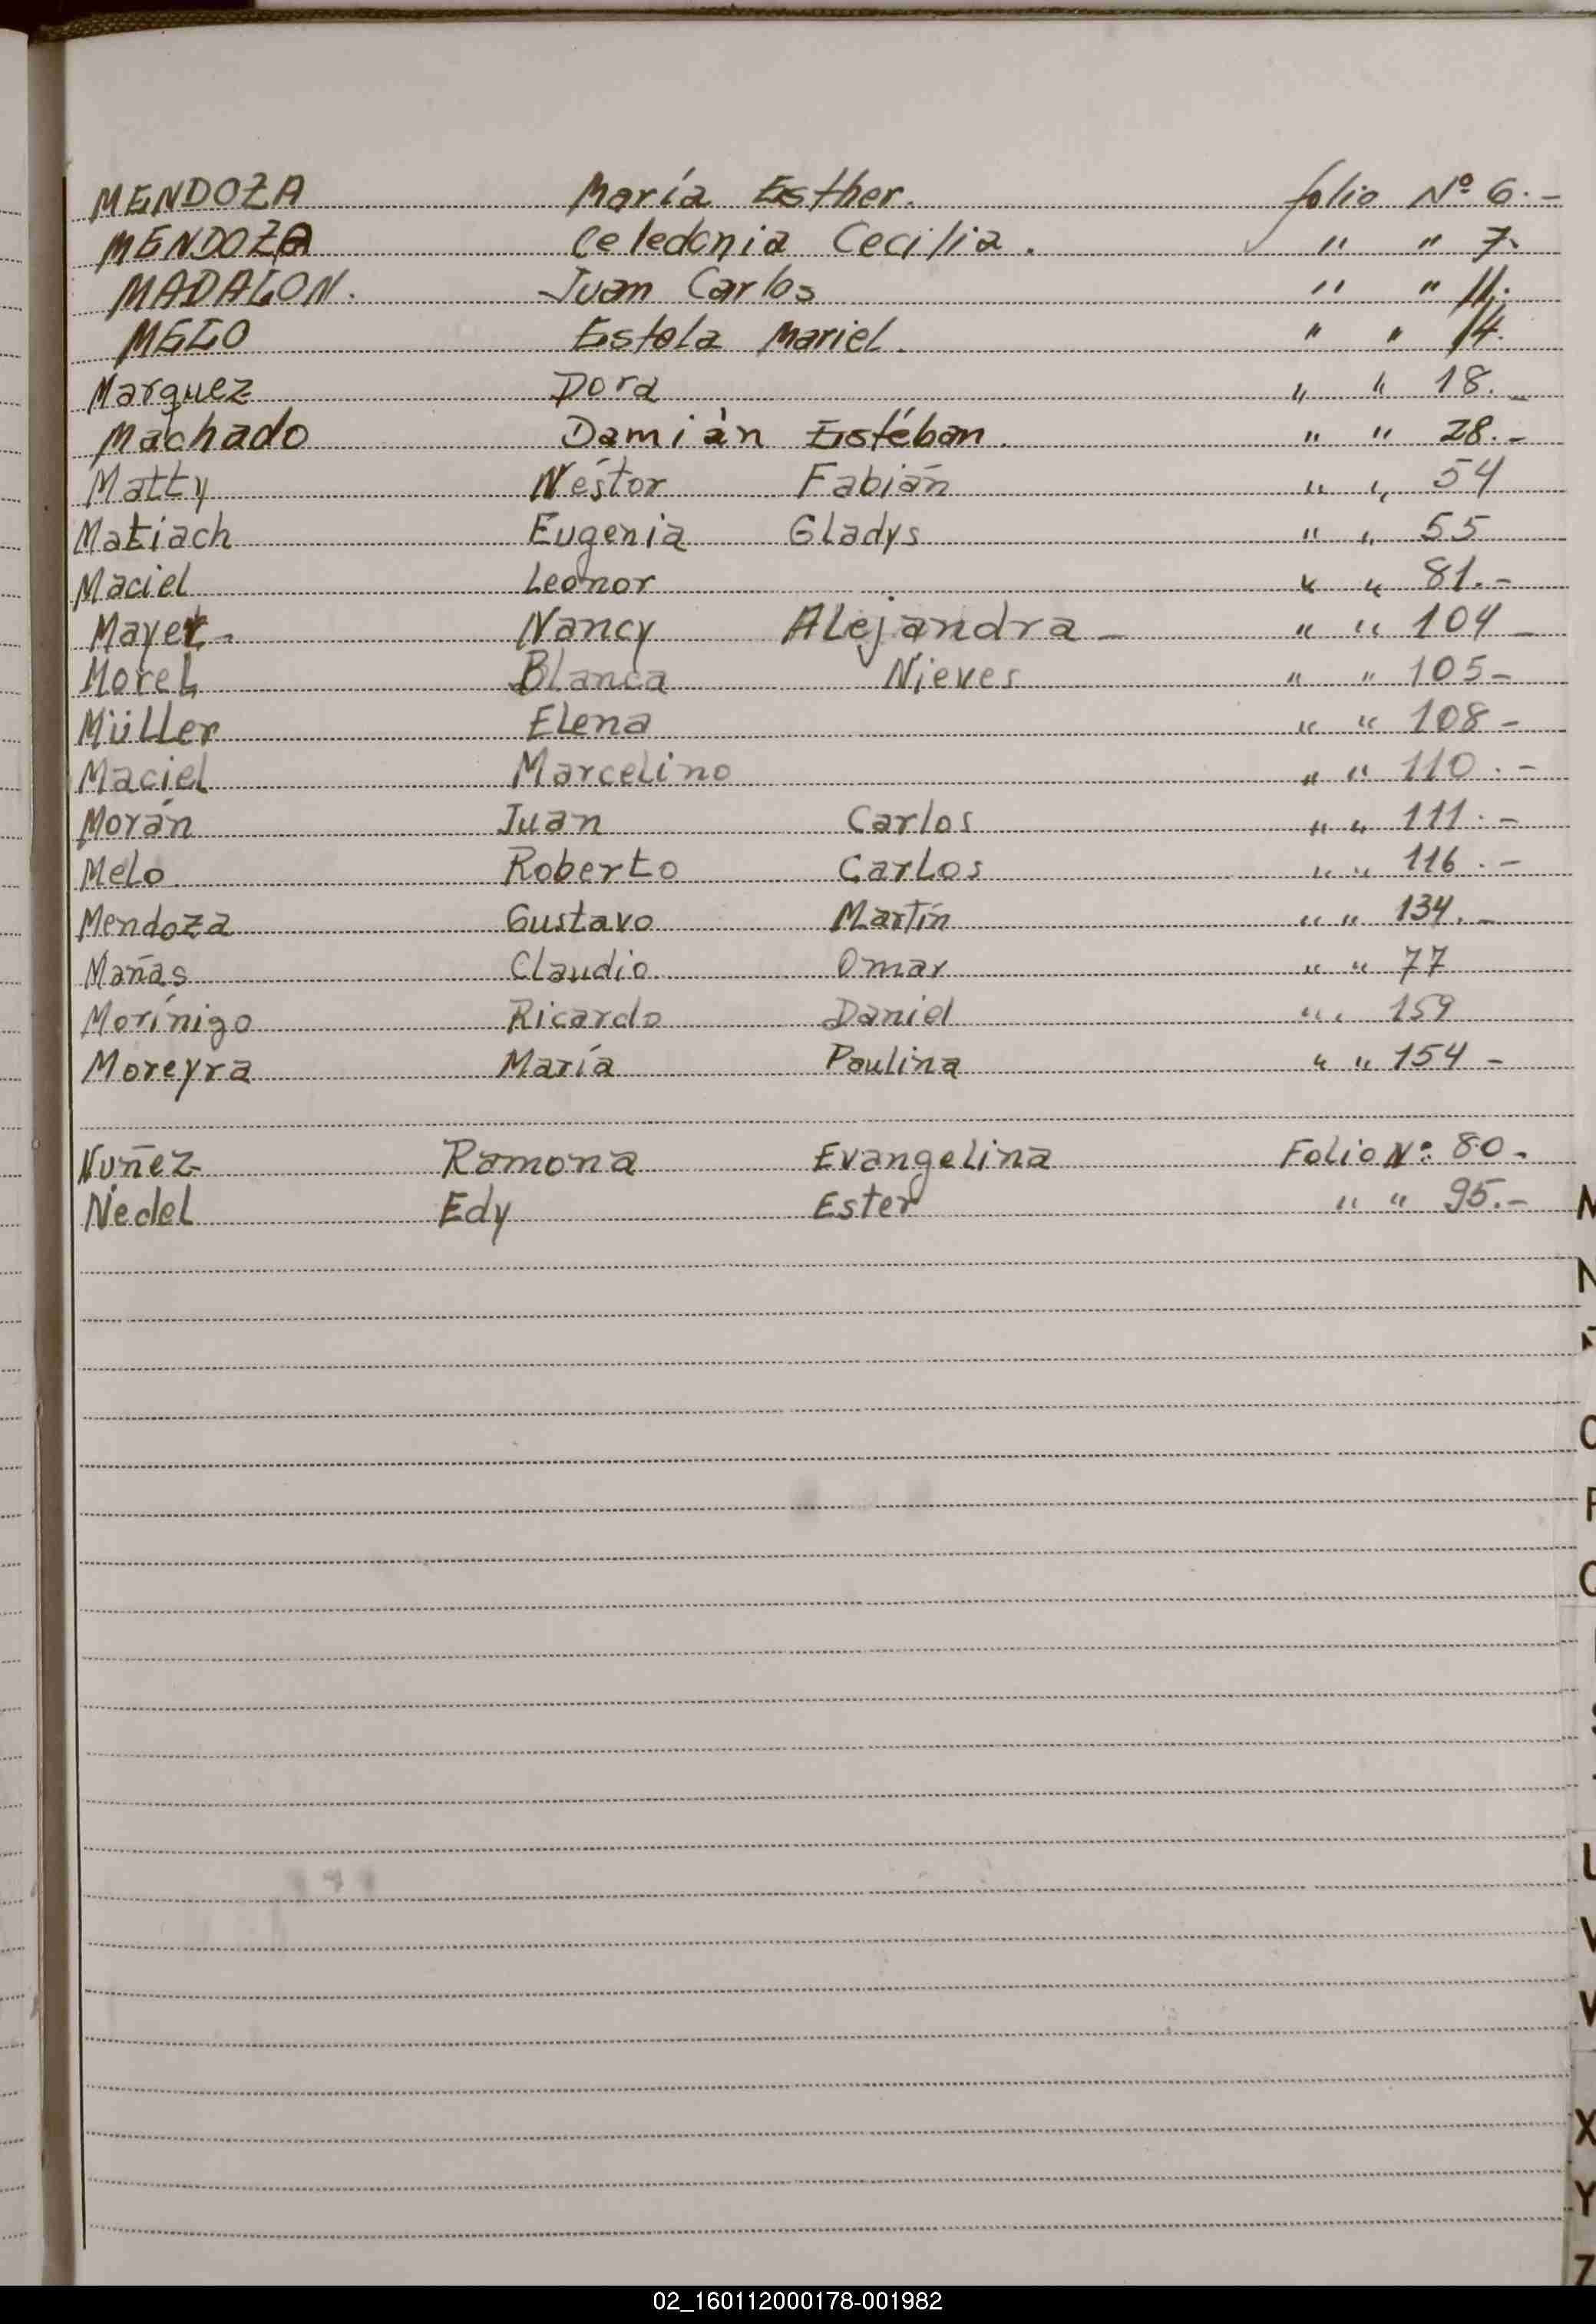 MENDOZA María Esther. folio Nº 6.-
MENDOZA Celedonia Cecilia. " " 7.
MADALON. Juan Carlos " " 11.
MELO Estela Mariel. " " 14.
Marquez Dora " " 18.-
Machado Damián Estéban. " " 28.-
Matty Néstor Fabián " " 54
Matiach Eugenia Gladys " " 55
Maciel Leonor " " 81.-
Mayer - Nancy Alejandra - " " 104 -
Morel Blanca Nieves " " 105 -
Müller Elena " " 108 -
Maciel Marcelino " " 110.-
Morán Juan Carlos " " 111.-
Melo Roberto Carlos " " 116.-
Mendoza Gustavo Martín " " 134.-
Mañas Claudio Omar " " 77
Morínigo Ricardo Daniel " " 159
Moreyra María Paulina " " 154 -
Nuñez Ramona Evangelina Folio Nº: 80.
Nedel Edy Ester " " 95.-
X
Y
Z
02_160112000178-001982